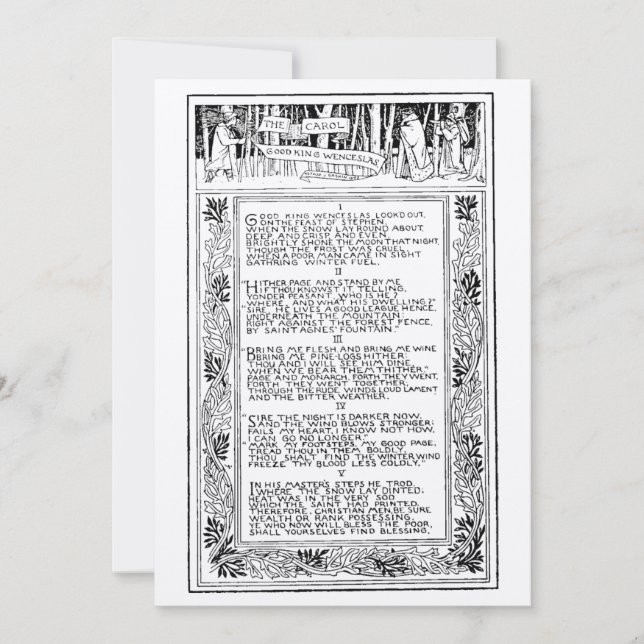 THE CAROL
GOOD KING WENCESLAS
I
GOOD KING WENCESLAS LOOKD OUT,
ON THE FEAST OF STEPHEN,
WHEN THE SNOW LAY ROUND ABOUT,
DEEP, AND CRISP, AND EVEN,
BRIGHTLY SHONE THE MOON THAT NIGHT,
THOUGH THE FROST WAS CRUEL,
WHEN A POOR MAN CAME IN SIGHT
GATHRING WINTER FUEL.
II
"HITHER, PAGE AND STAND BY ME
IF THOU KNOWST IT, TELLING,
YONDER PEASANT, WHO IS HE?
WHERE, AND WHAT HIS DWELLING?"
"SIRE, HE LIVES A GOOD LEAGUE HENCE,
UNDERNEATH THE MOUNTAIN:
RIGHT AGAINST THE FOREST FENCE,
BY SAINT AGNES' FOUNTAIN."
III
"BRING ME FLESH AND BRING ME WINE
BRING ME PINE-LOGS HITHER;
THOU AND I WILL SEE HIM DINE,
WHEN WE BEAR THEM THITHER."
PAGE AND MONARCH, FORTH THEY WENT,
FORTH THEY WENT TOGETHER;
THROUGH THE RUDE WINDS LOUD LAMENT
AND THE BITTER WEATHER.
IV
"SIRE THE NIGHT IS DARKER NOW,
AND THE WIND BLOWS STRONGER;
FAILS MY HEART, I KNOW NOT HOW,
I CAN GO NO LONGER."
"MARK MY FOOTSTEPS, MY GOOD PAGE,
TREAD THOU IN THEM BOLDLY,
THOU SHALT FIND THE WINTER WIND
FREEZE THY BLOOD LESS COLDLY."
V
IN HIS MASTER'S STEPS HE TROD,
WHERE THE SNOW LAY DINTED;
HEAT WAS IN THE VERY SOD
WHICH THE SAINT HAD PRINTED.
THEREFORE, CHRISTIAN MEN, BE SURE
WEALTH OR RANK POSSESSING,
YE WHO NOW WILL BLESS THE POOR,
SHALL YOURSELVES FIND BLESSING.